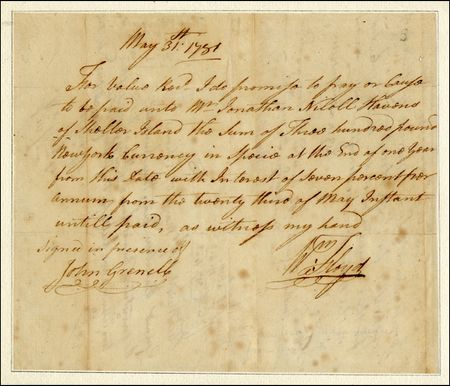 May 31st 1781
For Value Recd. I do promise to pay or Cause
to be paid unto Mr. Jonathan Nicoll Havens
of Shelter Island the Sum of Three hundred pound
Newyork Currency in Specie at the End of one Year
from this Date with Interest of Seven percent per
annum from the twenty third of May Instant
untill paid, as witness my hand
Signed in presence of
John Grenell
Wm Floyd